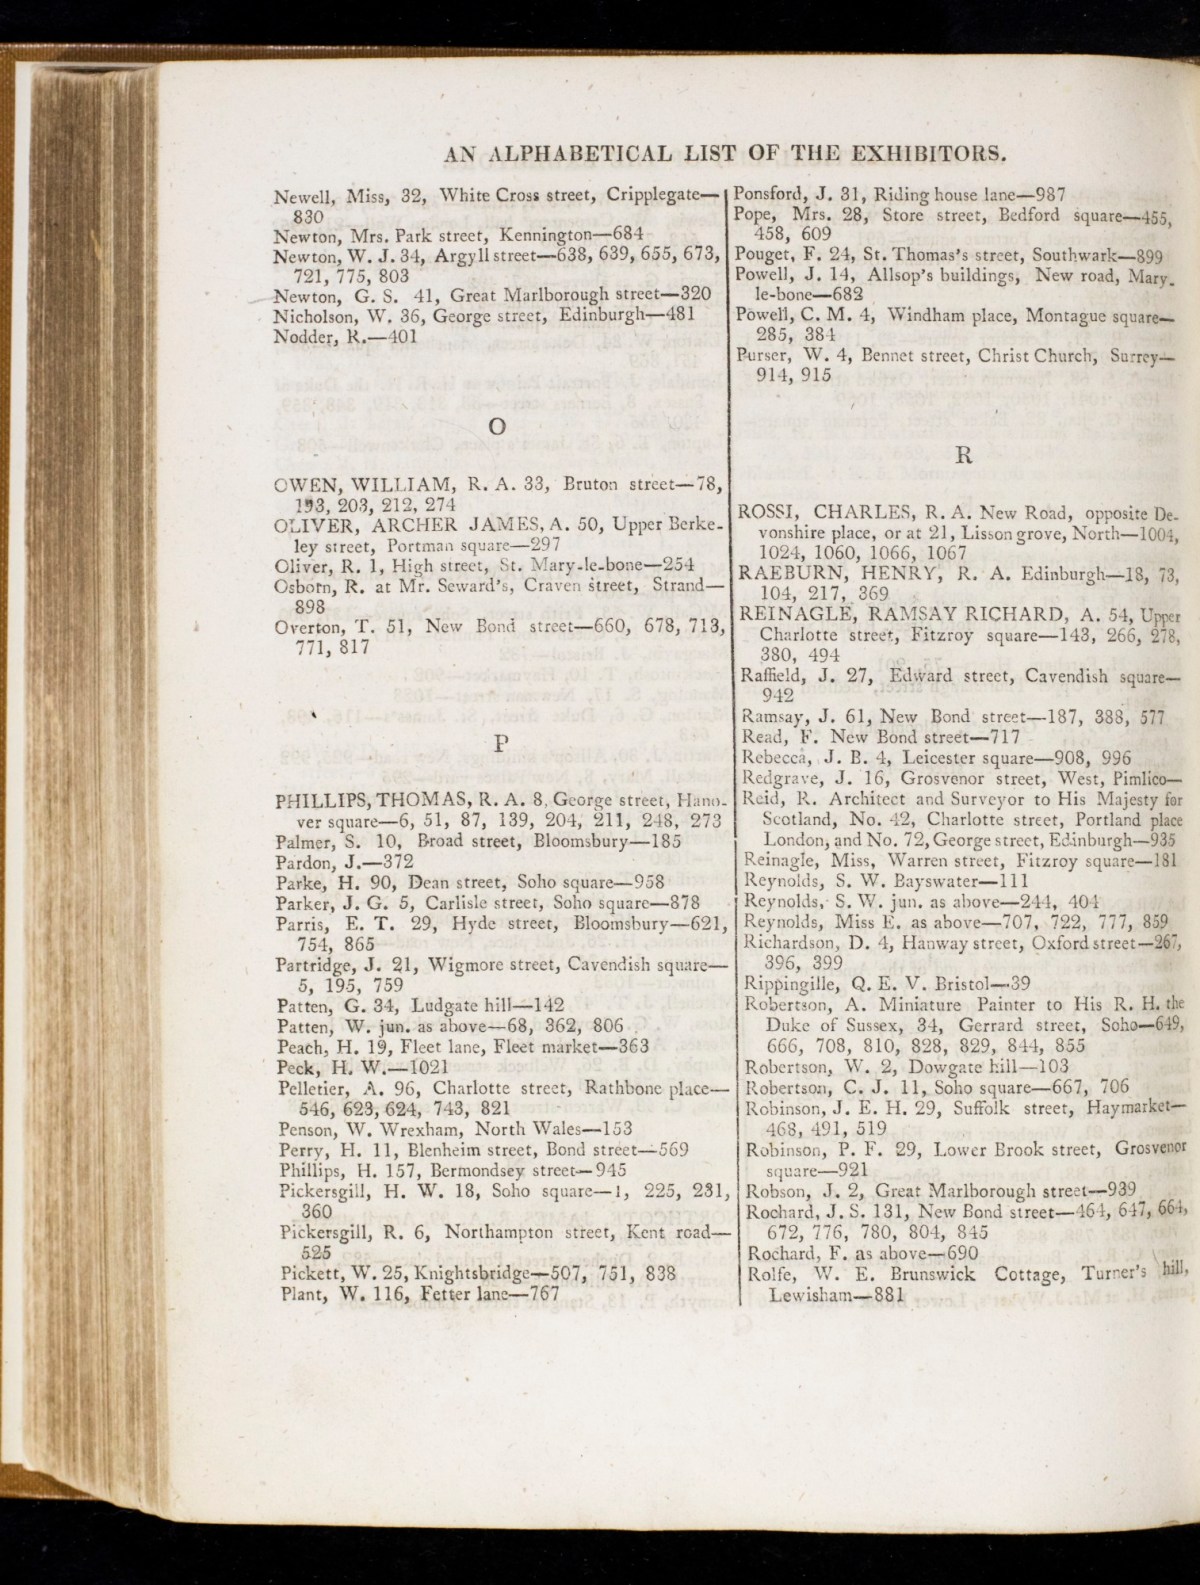 AN ALPHABETICAL LIST OF THE EXHIBITORS.
Newell, Miss, 32, White Cross street, Cripplegate—
830
Newton, Mrs. Park street, Kennington—684
Newton, W. J. 34, Argyll street—638, 639, 655, 673,
721, 775, 803
Newton, G. S. 41, Great Marlborough street—320
Nicholson, W. 36, George street, Edinburgh—481
Nodder, R.—401
O
OWEN, WILLIAM, R. A. 33, Bruton street—78,
193, 203, 212, 274
OLIVER, ARCHER JAMES, A. 50, Upper Berke-
ley street, Portman square—297
Oliver, R. 1, High street, St. Mary-le-bone—254
Osborn, R. at Mr. Seward's, Craven street, Strand—
898
Overton, T. 51, New Bond street—660, 678, 713,
771, 817
P
PHILLIPS, THOMAS, R. A. 8, George street, Hano-
ver square—6, 51, 87, 139, 204, 211, 248, 273
Palmer, S. 10, Broad street, Bloomsbury—185
Pardon, J.—372
Parke, H. 90, Dean street, Soho square—958
Parker, J. G. 5, Carlisle street, Soho square—878
Parris, E. T. 29, Hyde street, Bloomsbury—621,
754, 865
Partridge, J. 21, Wigmore street, Cavendish square—
5, 195, 759
Patten, G. 34, Ludgate hill—142
Patten, W. jun. as above—68, 362, 806
Peach, H. 19, Fleet lane, Fleet market—363
Peck, H. W.—1021
Pelletier, A. 96, Charlotte street, Rathbone place—
546, 623, 624, 743, 821
Penson, W. Wrexham, North Wales—153
Perry, H. 11, Blenheim street, Bond street—569
Phillips, H. 157, Bermondsey street—945
Pickersgill, H. W. 18, Soho square—1, 225, 231,
360
Pickersgill, R. 6, Northampton street, Kent road—
525
Pickett, W. 25, Knightsbridge—507, 751, 838
Plant, W. 116, Fetter lane—767
Ponsford, J. 31, Riding house lane—987
Pope, Mrs. 28, Store street, Bedford square—455,
458, 609
Pouget, F. 24, St. Thomas's street, Southwark—899
Powell, J. 14, Allsop's buildings, New road, Mary-
le-bone—682
Powell, C. M. 4, Windham place, Montague square—
285, 384
Purser, W. 4, Bennet street, Christ Church, Surrey—
914, 915
R
ROSSI, CHARLES, R. A. New Road, opposite De-
vonshire place, or at 21, Lisson grove, North—1004,
1024, 1060, 1066, 1067
RAEBURN, HENRY, R. A. Edinburgh—18, 73,
104, 217, 369
REINAGLE, RAMSAY RICHARD, A. 54, Upper
Charlotte street, Fitzroy square—143, 266, 278,
380, 494
Raffield, J. 27, Edward street, Cavendish square—
942
Ramsay, J. 61, New Bond street—187, 388, 577
Read, F. New Bond street—717
Rebecca, J. B. 4, Leicester square—908, 996
Redgrave, J. 16, Grosvenor street, West, Pimlico—
Reid, R. Architect and Surveyor to His Majesty for
Scotland, No. 42, Charlotte street, Portland place
London, and No. 72, George street, Edinburgh—935
Reinagle, Miss, Warren street, Fitzroy square—181
Reynolds, S. W. Bayswater—111
Reynolds, S. W. jun. as above—244, 404
Reynolds, Miss E. as above—707, 722, 777, 859
Richardson, D. 4, Hanway street, Oxford street—267,
396, 399
Rippingille, Q. E. V. Bristol—39
Robertson, A. Miniature Painter to His R. H. the
Duke of Sussex, 34, Gerrard street, Soho—649,
666, 708, 810, 828, 829, 844, 855
Robertson, W. 2, Dowgate hill—103
Robertson, C. J. 11, Soho square—667, 706
Robinson, J. E. H. 29, Suffolk street, Haymarket—
468, 491, 519
Robinson, P. F. 29, Lower Brook street, Grosvenor
square—921
Robson, J. 2, Great Marlborough street—939
Rochard, J. S. 131, New Bond street—464, 647, 664,
672, 776, 780, 804, 845
Rochard, F. as above—690
Rolfe, W. E. Brunswick Cottage, Turner's hill,
Lewisham—881